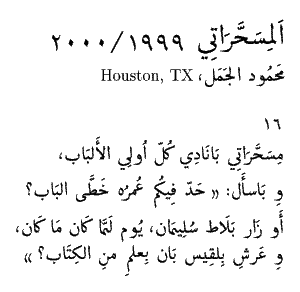 اَلمِسَحَّرَاتِي ١٩٩٩/٢٠٠٠
مَحَمُود الجَمَل، Houston, TX
١٦
مِسَحَّرَاتِي بَانَادِي كُلّ اُولِي الأَلبَاب،
وِ بَاسأَل: « حَدّ فِيكُم عُمرُه خَطَّى البَاب؟
أَو زَار بَلَاط سُلِيمَان، يُوم لَمَّا كَان مَا كَان،
وِ عَرشِ بِلقِيس بَان بِعلمٍ مِنِ الكِتَاب؟ »